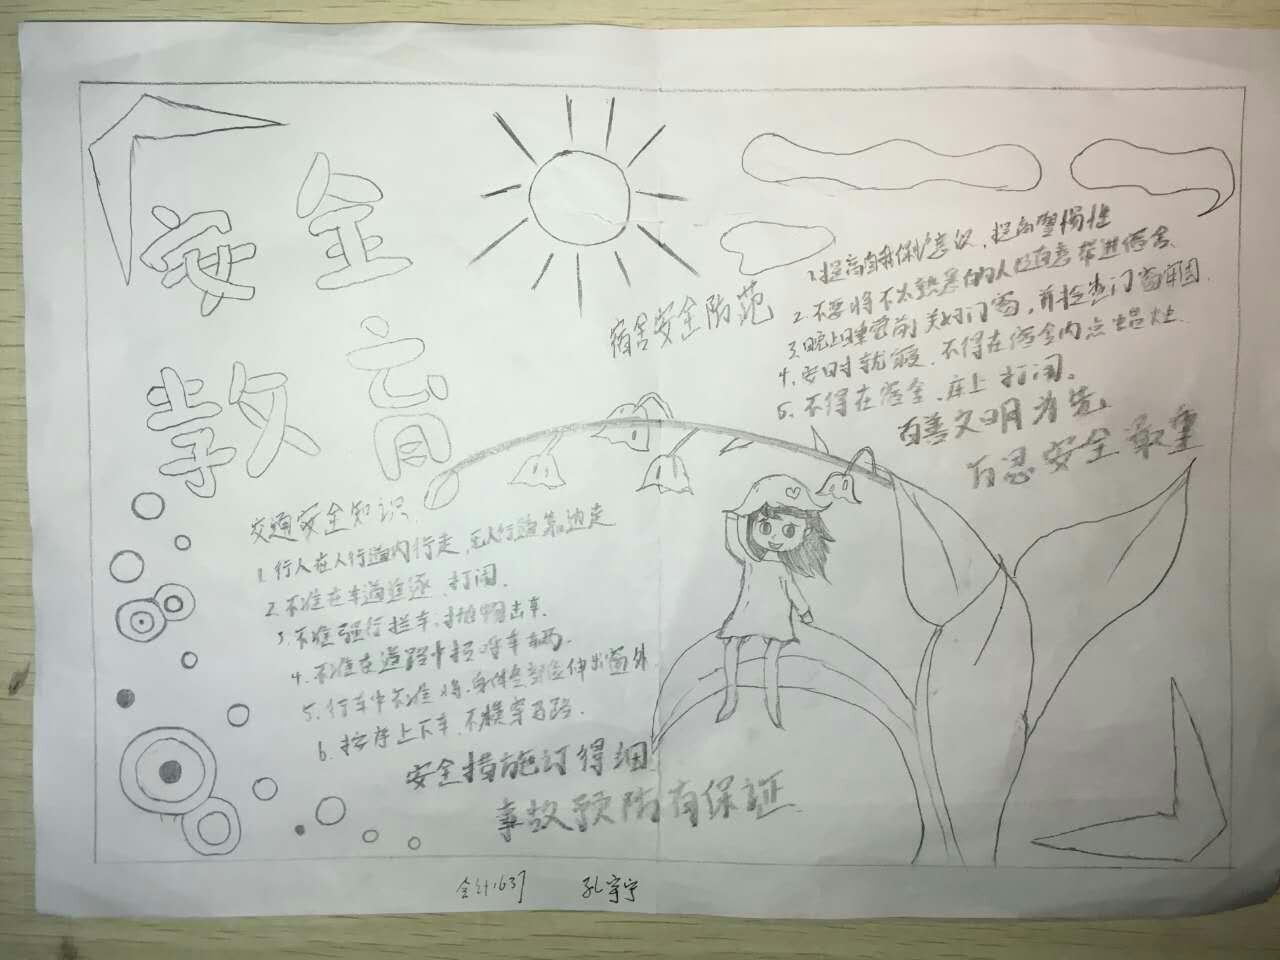 安全
教育
宿舍安全防范
1.提高自我保护意识,提高警惕性
2.不要将不太熟悉的人随意带进宿舍.
3.晚上睡觉前关好门窗,并检查门窗牢固.
4.按时就寝.不得在宿舍内点蜡烛.
5.不得在宿舍.床上打闹。
百善文明为先
百思安全最重
交通安全知识
1.行人在人行道内行走,无人行道靠边走
2.不准在车道追逐.打闹.
3.不准强行拦车,抛物击车.
4.不准在道路中招呼车辆.
5.行车中不准将.身体各部位伸出窗外.
6.按序上下车.不横穿马路.
安全措施订得细
事故预防有保证
会计1637 孔宇宁